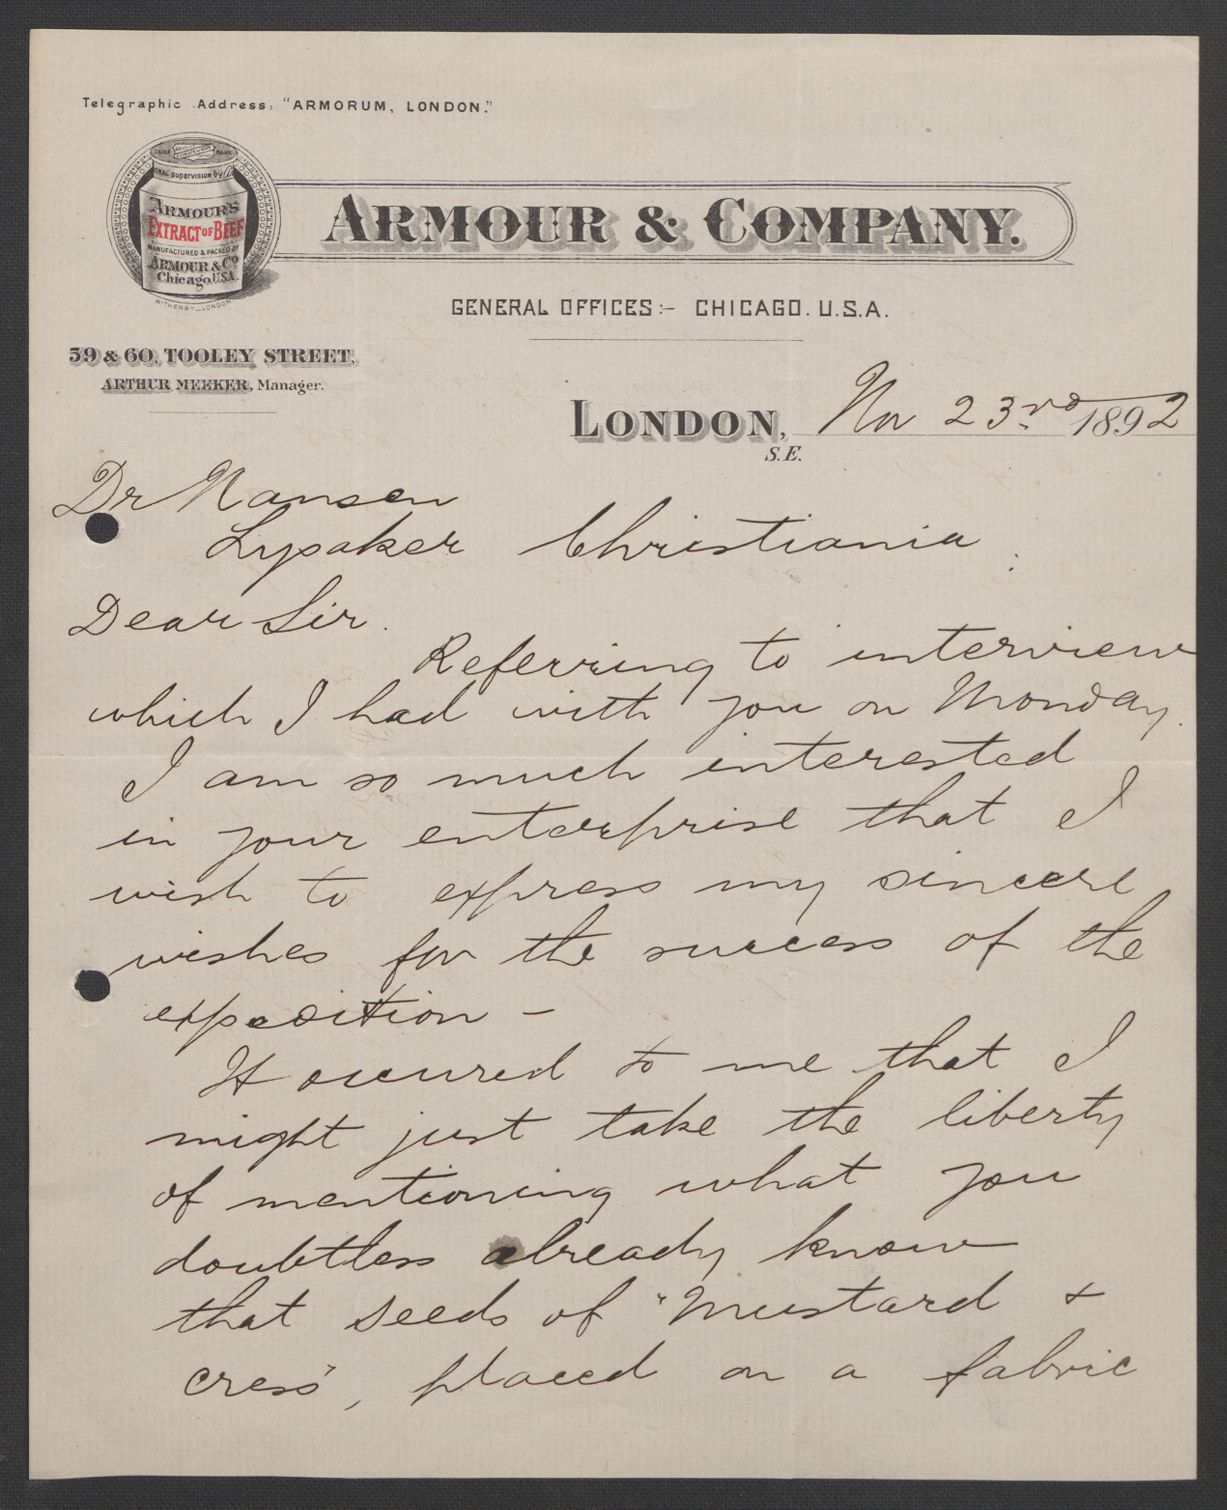 Telegraphic Address: "ARMORUM, LONDON."
TRADE MARK
supervision by
ARMOUR'S
EXTRACT OF BEEF
MANUFACTURED & PACKED BY
ARMOUR & Co
Chicago, U.S.A.
WITHERBY_LONDON
ARMOUR & COMPANY.
GENERAL OFFICES:- CHICAGO. U.S.A.
59 & 60, TOOLEY STREET,
ARTHUR MEEKER, Manager.
LONDON, Nov 23rd 1892
S.E.
Dr Nansen
Lysaker Christiania.
Dear Sir.
Referring to interview
which I had with you on Monday.
I am so much interested
in your enterprise that I
wish to express my sincere
wishes for the success of the
expedition –
It occured to me that I
might just take the liberty
of mentioning what you
doubtless already know
that seeds of "Mustard &
cress", placed on a fabric